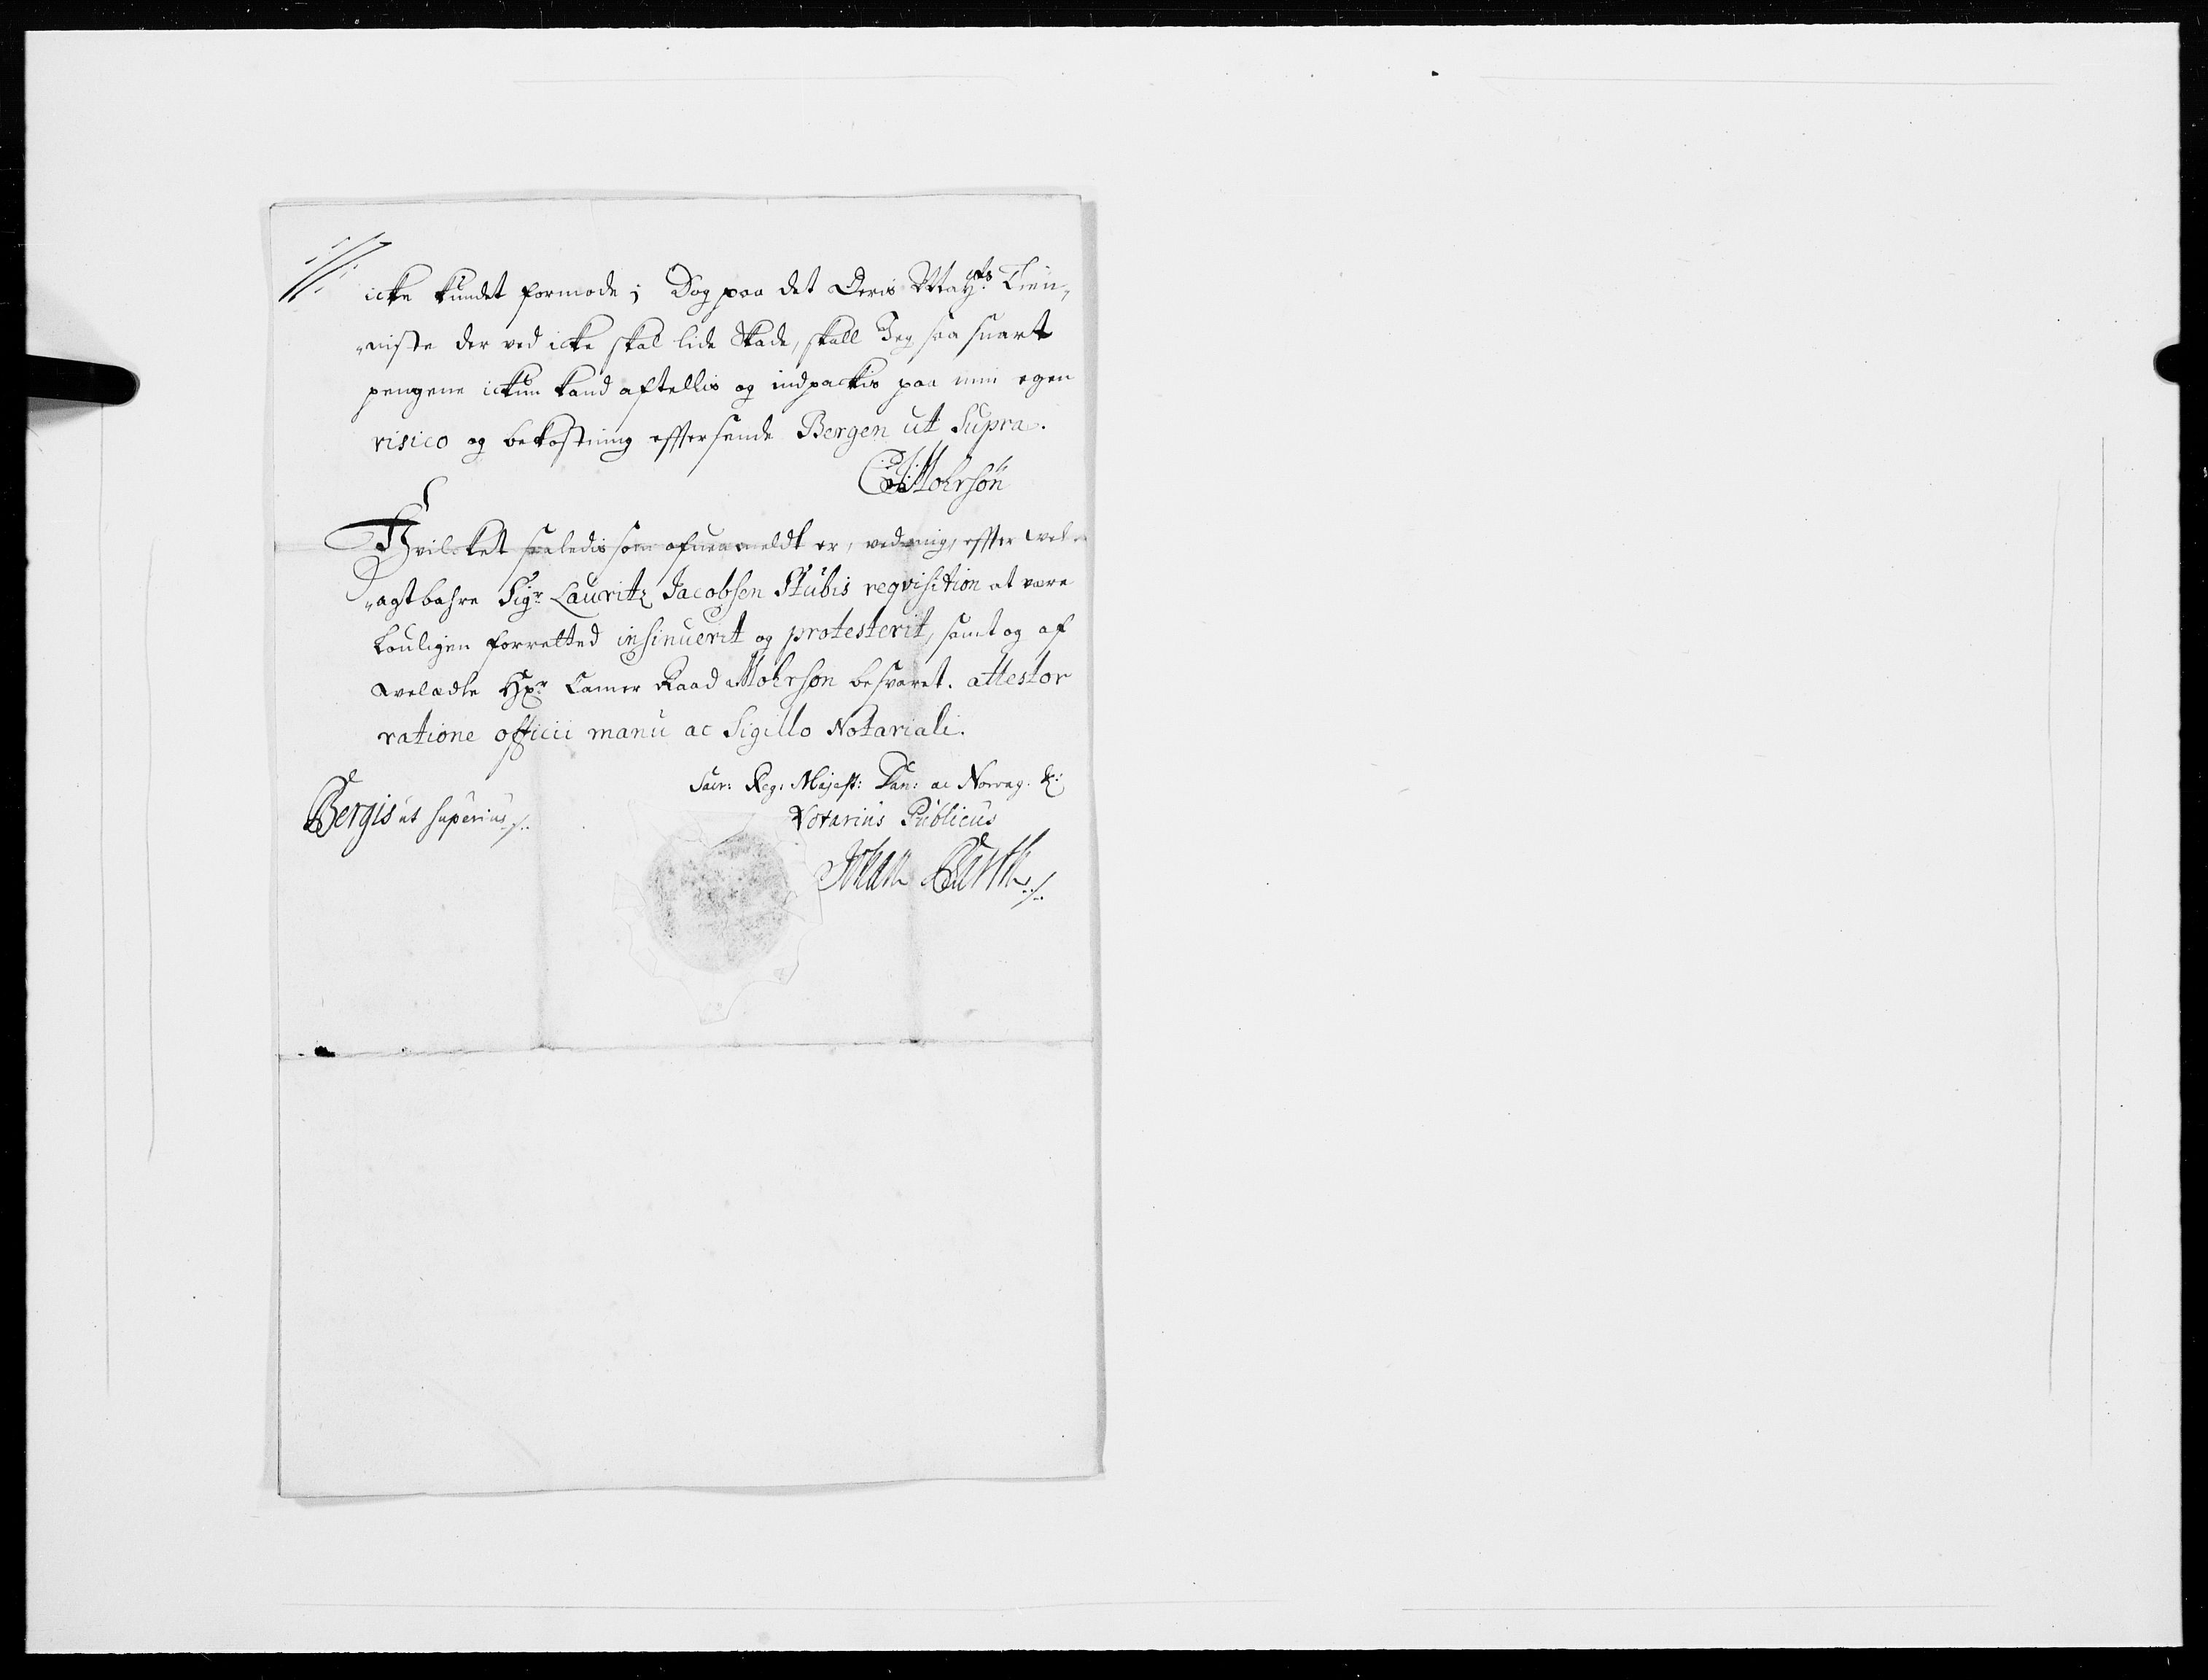 icke kundet formode; Dog paa det Deris Mayts: Tien„
„niste der ved icke skal lide Skade, skall Jeg saa snart
pengene ickun kand aftellis og indpackis paa min egen
risico og bekostning effter sende Bergen ut Supra.
Mohrsön
Hvilcket saaledis som ofven meldt er, ved mig, effter vel
„agtbahre Sigr Lauritz Jacobsen Stubis reqvisition at være
louligen forretted insinuerit og protesterit, samt og af
velædle Hr Camer Raad Mohrsön besvaret. attestor
ratione officii manu ac Sigillo Notariali.
Sacr: Reg: Majest: Dan: ac Norvag. &:
Bergis ut superius ./.
Notarius Publicus
Johan ./.